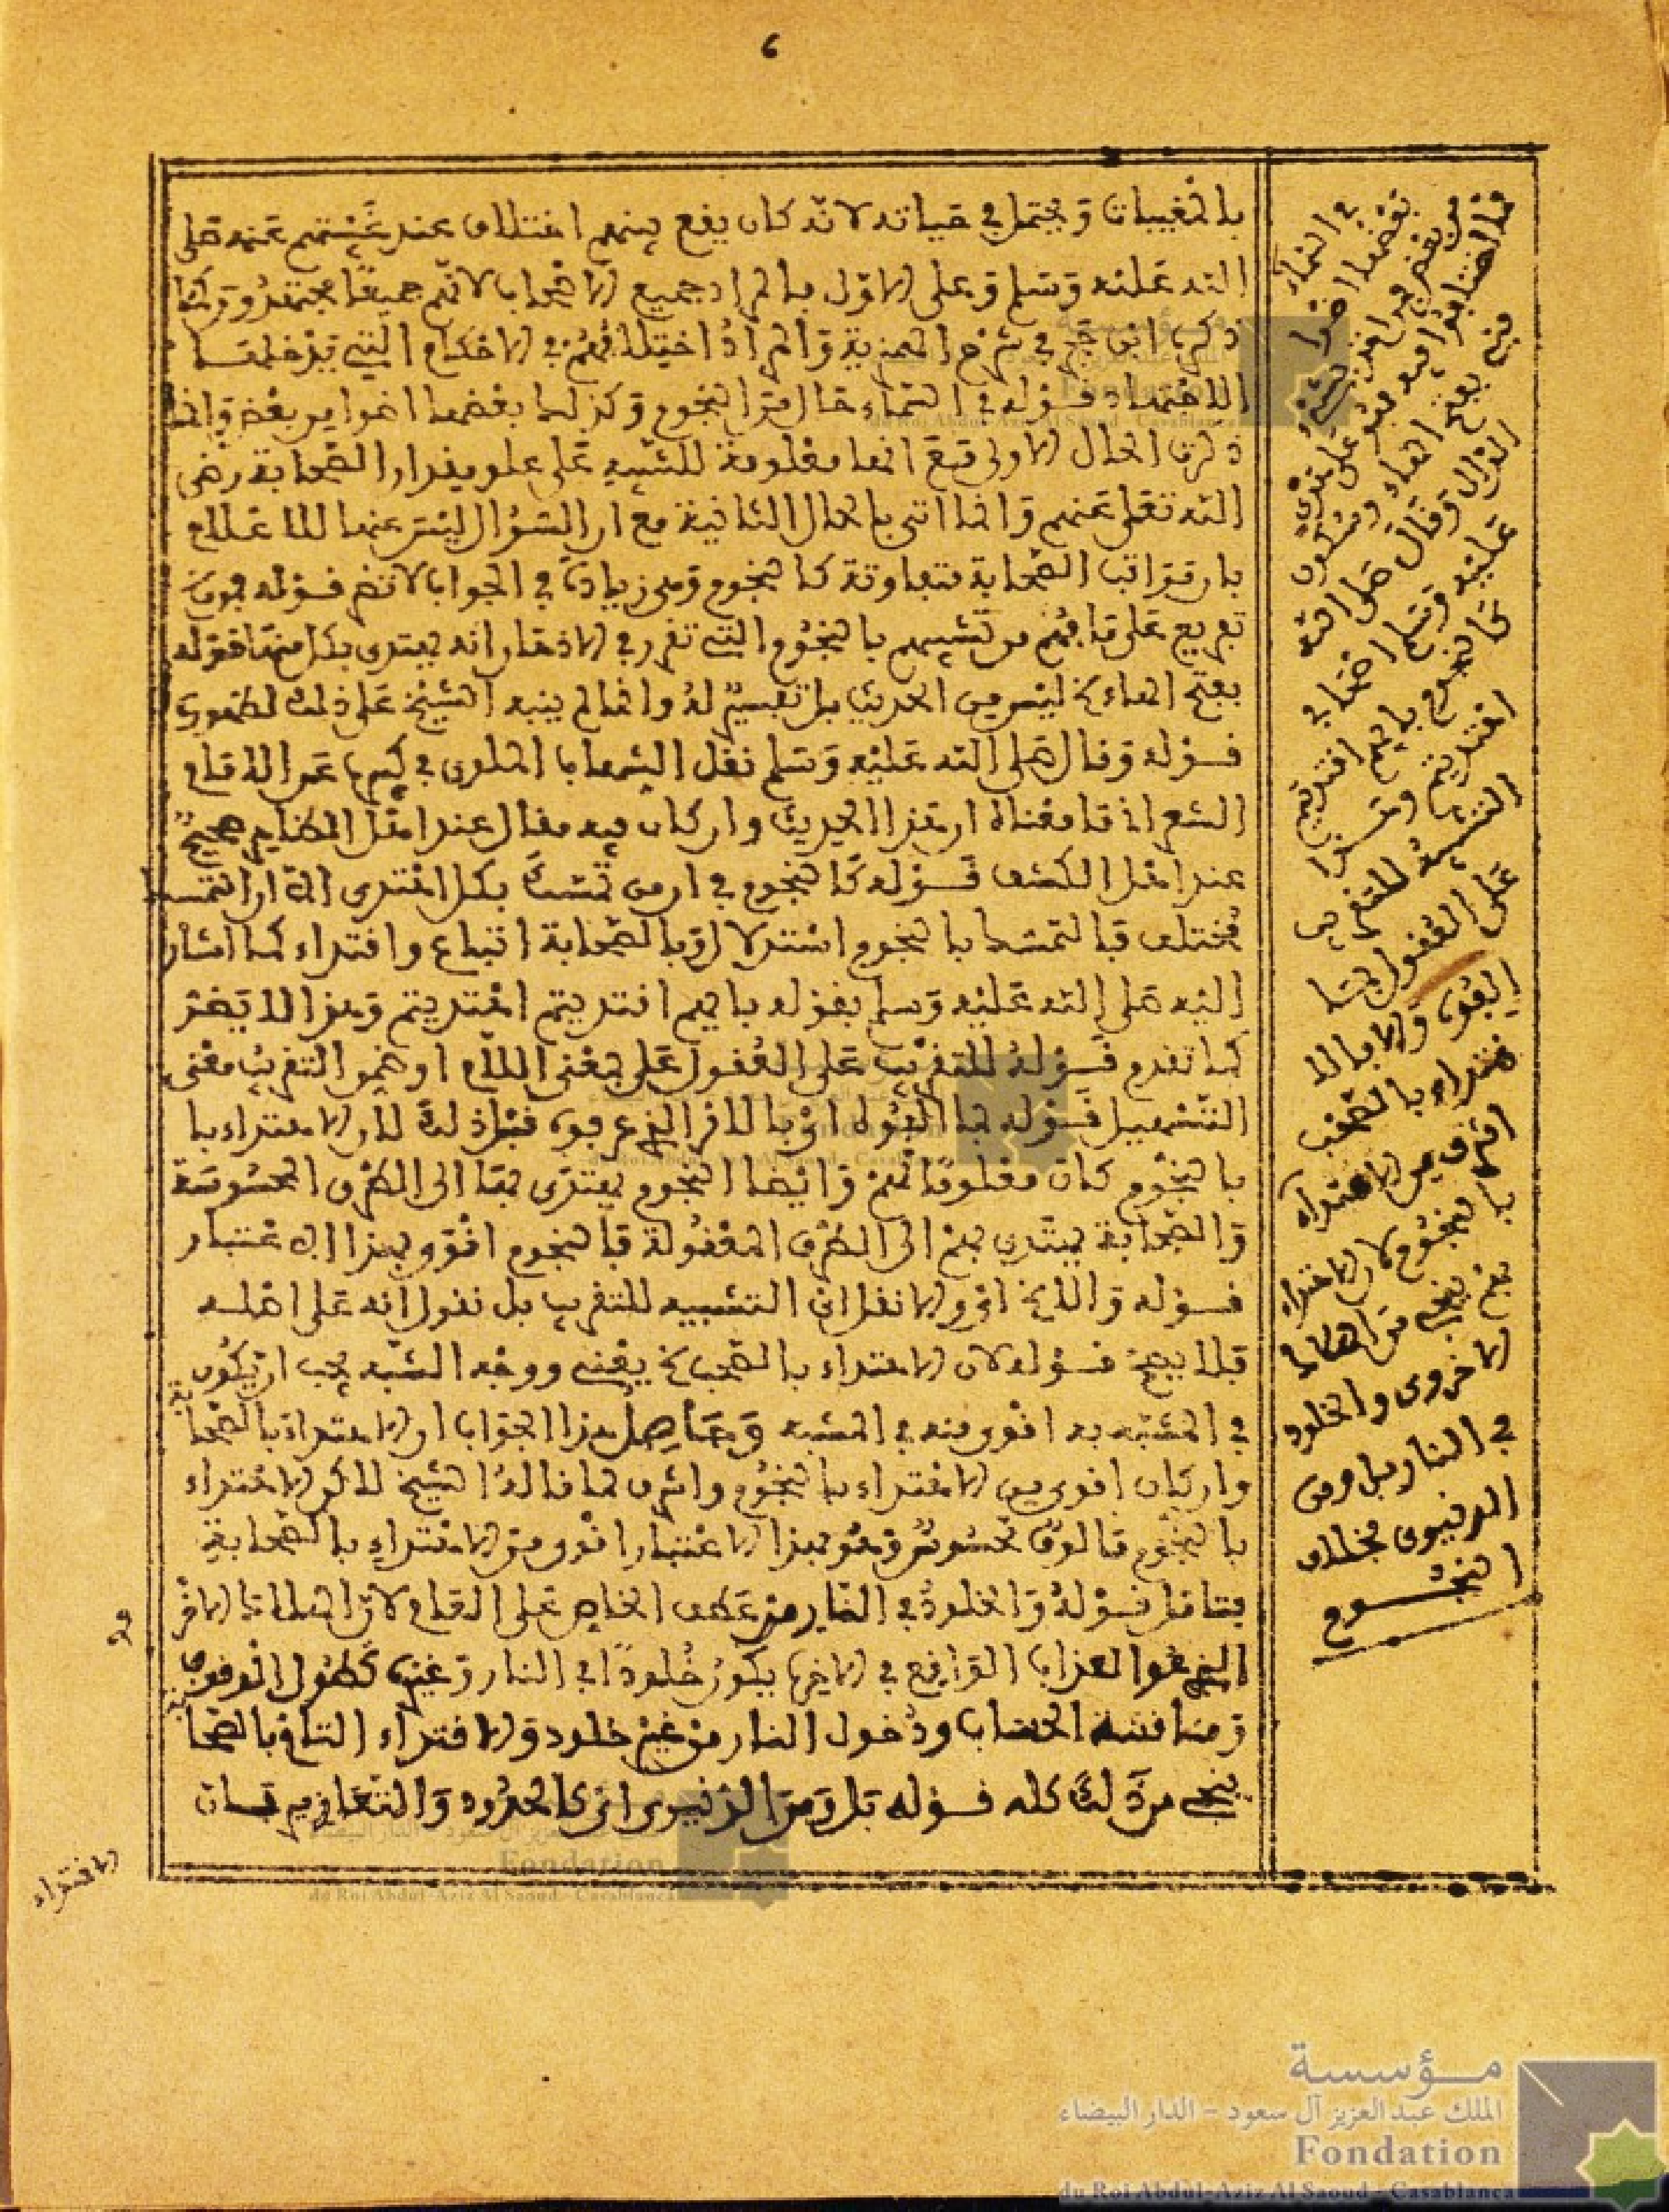 ٦
بالمغيبات ويحتمل في حياته لانه كان يقع بينهم اختلاف عند غيبتهم عنه صلى
الله عليه وسلم وعلى الاول بالمراد جميع الاصحاب لانهم جميعا مجتهدون كما
ذكره ابن حجر في شرح الهمزية والمراد اختلافهم في الاحكام التي يدخلها
الاجتهاد قوله في السماء حال من النجوم وكذلك بعضها اضوا من بعض وانما
ذكرت الحال الاولى مع انها معلومة للتنبيه على علو مقدار الصحابة رضي
الله تعلى عنهم وانما اتى بالحال الثانية مع ان السؤال ليس عنها للاعلام
بان مراتب الصحابة متفاوتة كالنجوم وهي زيادة في الجواب لا تضر قوله فهو
تفريع على ما فهم من تشبيههم بالنجوم التي تقرر في الاذهان انه يهتدى بكل منها فقوله
بفتح الهاء الخ ليس من الحديث بل تفسير له وانما لم ينبه الشيخ على ذلك لظهوره
قوله وقال صلى الله عليه وسلم نقل الشهاب الملوي في كبيره عن الامام
الشعراني ما معناه ان هذا الحديث وان كان فيه مقال عند اهل الظاهر صحيح
عند اهل الكشف قوله كالنجوم في ان من تمسك بكل اهتدى الا ان التمسك
مختلف فالتمسك بالنجوم استدلال وبالصحابة اتباع واقتداء كما اشار
اليه صلى الله عليه وسلم بقوله بايهم اقتديتم اهتديتم وهذا لا يضر
كما تقدم قوله للتقريب على العقول على بمعنى اللام او ضمن التقريب معنى
التسهيل قوله فما القوله اي بالامر الذي عرفوه قبل ذلك لان الاهتداء با
بالنجوم كان معلوما لهم وايضا النجوم يهتدى بها الى الطرق المحسوسة
والصحابة يهتدى بهم الى الطرق المعقولة فالنجوم اقوى بهذا الاعتبار
قوله والا الخ اي والا نقل ان التشبيه للتقريب بل نقول انه على اصله
فلا يصح قوله لان الاهتداء بالصحب الخ يعني ووجه الشبه يجب ان يكون
في المشبه به اقوى منه في المشبه وحاصل هذا الجواب ان الاهتداء بالصحابة
وان كان اقوى من الاهتداء بالنجوم واشرف لما قاله الشيخ لاكن الاهتداء
بالنجوم مالوف محسوس وهو بهذا الاعتبار اقوى من الاهتداء بالصحابة
قوله والخلود في النار من عطف الخاص على العام لان الهلاك الاخر
الذي هو العذاب الواقع في الاخرة يكون خلودا في النار وغيره كطول الوقوف
ومناقشة الحساب ودخول النار من غير خلود والاقتداء التام بالصحابة
ينجي من ذلك كله قوله بل ومن الدنيوي اي كالحدود والتعازير فان
الاقتداء
في السماء
بعضها اضوا
من بعض فمن اخذ بشيء
مما اختلفوا فيه فهو على هدى
فهو بفتح الهاء وسكون
الدال وقال صلى الله
عليه وسلم اصحابي
كالنجوم بايهم اقتديتم
اهتديتم وهذا
التشبيه للتقريب
على العقول بما
الفوه والا فالا
هتداء بالصحب
اشرف من الاهتداء
بالنجوم لان الاقتداء
بهم ينجي من الهلاك
الاخروي والخلود
في النار بل ومن
الدنيوي بخلاف
النجوم
مؤسسة
الملك عبد العزيز آل سعود - الدار البيضاء
Fondation
du Roi Abdul-Aziz Al Saoud - Casablanca